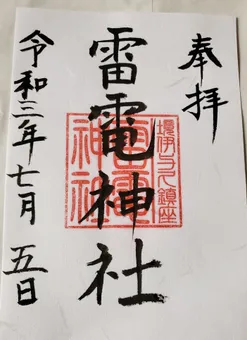 奉拝
雷電神社
令和三年七月五日
雷電神社